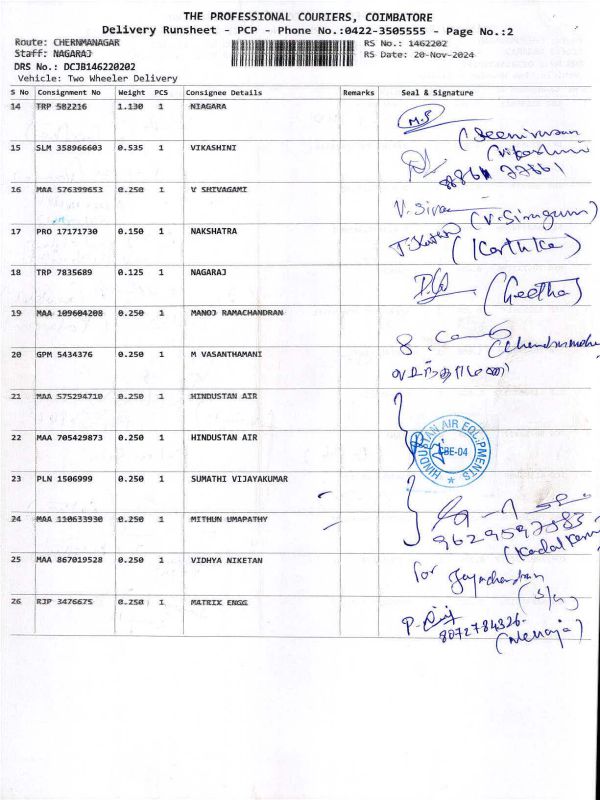 THE PROFESSIONAL COURIERS, COIMBATORE
Delivery Runsheet - PCP - Phone No.:0422-3505555 - Page No.:2
Route: CHERNMANAGAR RS No.: 1462202
Staff: NAGARAJ RS Date: 20-Nov-2024
DRS No.: DCJB146220202
Vehicle: Two Wheeler Delivery
S No Consignment No Weight PCS Consignee Details Remarks Seal & Signature
14 TRP 582216 1.130 1 NIAGARA M.S
15 SLM 358966603 0.535 1 VIKASHINI
16 MAA 576399653 0.250 1 V SHIVAGAMI
17 PRO 17171730 0.150 1 NAKSHATRA (Karthika)
18 TRP 7835689 0.125 1 NAGARAJ (Geetha)
19 MAA 109604208 0.250 1 MANOJ RAMACHANDRAN
20 GPM 5434376 0.250 1 M VASANTHAMANI
21 MAA 575294710 0.250 1 HINDUSTAN AIR
22 MAA 705429873 0.250 1 HINDUSTAN AIR
HINDUSTAN AIR EQUIPMENTS
CBE-04
23 PLN 1506999 0.250 1 SUMATHI VIJAYAKUMAR
24 MAA 110633930 0.250 1 MITHUN UMAPATHY
9629597583
25 MAA 867019528 0.250 1 VIDHYA NIKETAN for Jayachandran
26 RJP 3476675 0.250 1 MATRIX ENGG
8072784326